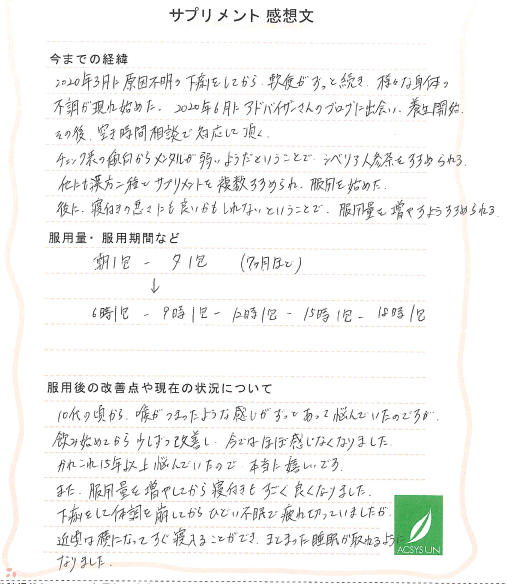 サプリメント 感想文
今までの経緯
2020年3月に原因不明の下痢をしてから、軟便がずっと続き、様々な身体の
不調が現れ始めた。2020年6月にアドバイザーさんのブログに出会い、養生開始。
その後、空き時間相談で対応して頂く。
チェック表の傾向からメンタルが弱いようだということで、シベリア人参茶をすすめられる。
他にも漢方二種とサプリメントを複数すすめられ、服用を始めた。
後に、寝付きの悪さにも良いかもしれないということで、服用量を増やすようすすめられる。
服用量・服用期間など
朝1包 - 夕1包 (7ヶ月ほど)
↓
6時1包 - 9時1包 - 12時1包 - 15時1包 - 18時1包
服用後の改善点や現在の状況について
10代の頃から、喉がつまったような感じがずっとあって悩んでいたのですが、
飲み始めてから少しずつ改善し、今ではほぼ感じなくなりました。
かれこれ15年以上悩んでいたので、本当に嬉しいです。
また、服用量を増やしてから寝付きもすごく良くなりました。
下痢をして体調を崩してからひどい不眠で疲れ切っていましたが、
近頃は横になってすぐ寝入ることができ、まとまった睡眠が取れるように
なりました。
ACSYSUN